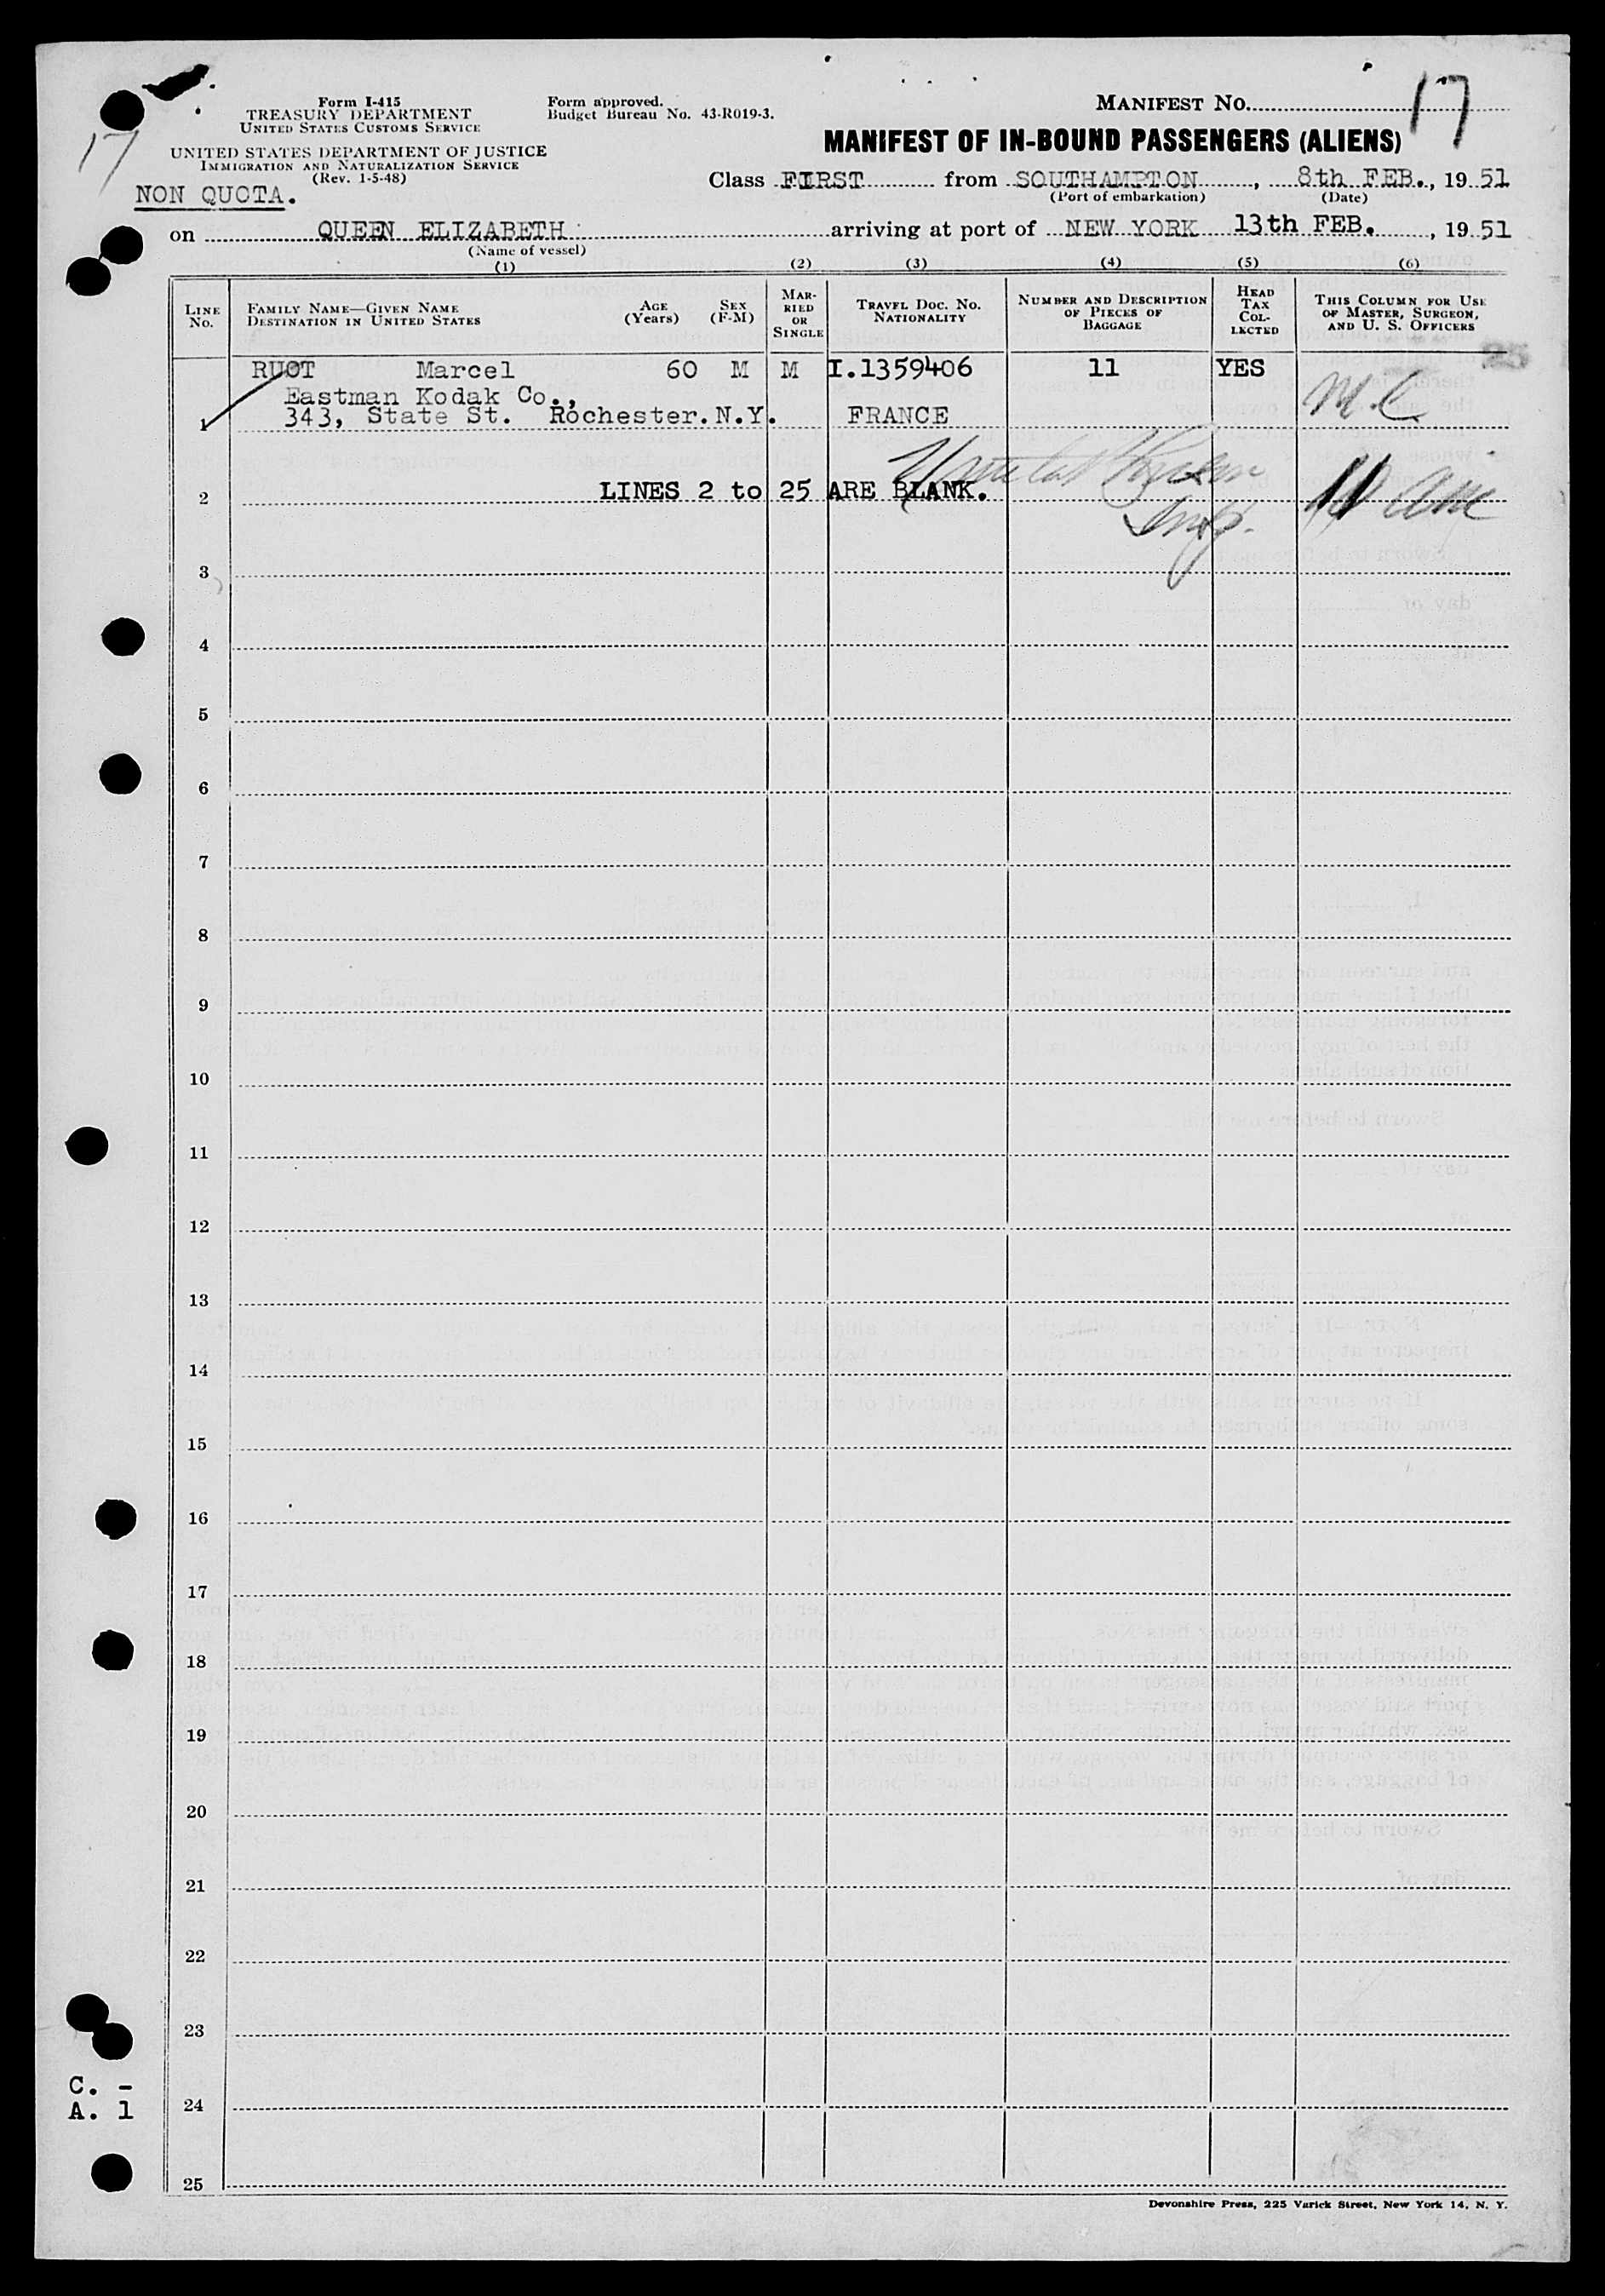 17
17
Form I-415
TREASURY DEPARTMENT
UNITED STATES CUSTOMS SERVICE
Form approved.
Budget Bureau No. 43-R019-3.
MANIFEST NO.
MANIFEST OF IN-BOUND PASSENGERS (ALIENS)
UNITED STATES DEPARTMENT OF JUSTICE
IMMIGRATION AND NATURALIZATION SERVICE
(Rev. 1-5-48)
NON QUOTA.
Class FIRST from SOUTHAMPTON, 8th FEB., 19 51
(Port of embarkation) (Date)
on QUEEN ELIZABETH arriving at port of NEW YORK 13th FEB., 19 51
(Name of vessel)
(1) (2) (3) (4) (5) (6)
LINE NO.
FAMILY NAME—GIVEN NAME
DESTINATION IN UNITED STATES
AGE (Years)
SEX (F-M)
MARRIED OR SINGLE
TRAVEL DOC. NO.
NATIONALITY
NUMBER AND DESCRIPTION
OF PIECES OF
BAGGAGE
HEAD TAX COLLECTED
THIS COLUMN FOR USE
OF MASTER, SURGEON,
AND U. S. OFFICERS
25
RUOT Marcel 60 M M I.1359406 11 YES
Eastman Kodak Co.,
M.C
1 343, State St. Rochester.N.Y. FRANCE
2 LINES 2 to 25 ARE BLANK.
Insp.
3
4
5
6
7
8
9
10
11
12
13
14
15
16
17
18
19
20
21
22
23
C. -
A. 1
24
25
Devonshire Press, 225 Varick Street, New York 14, N. Y.